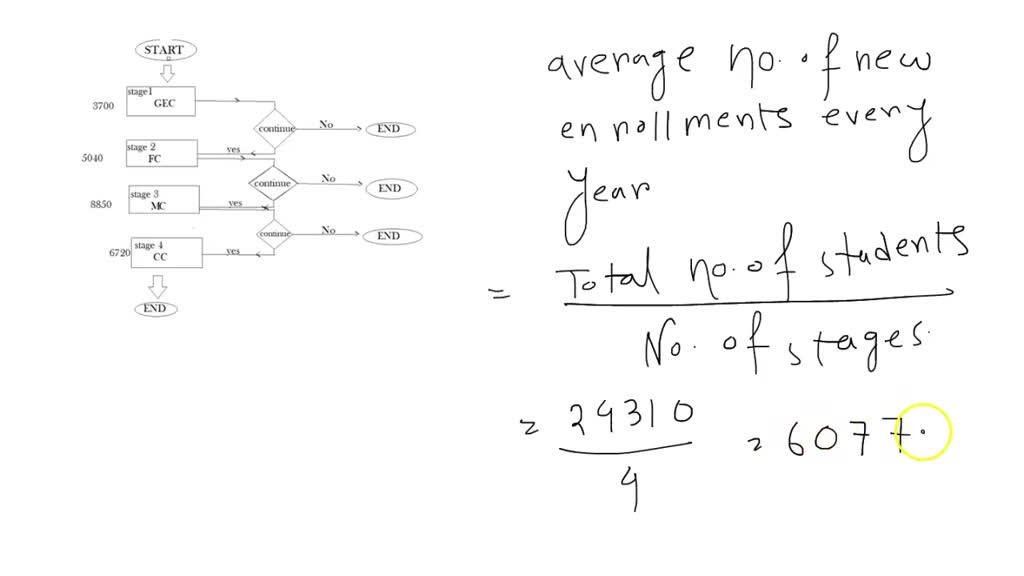 START
stage1
GEC
3700
continue
No
END
yes
stage 2
FC
5040
continue
No
END
stage 3
MC
8850
yes
continue
No
END
stage 4
CC
6720
yes
END
average no. of new
enrollments every
year
= Total no. of students
No. of stages.
= 24310
4
= 6077.